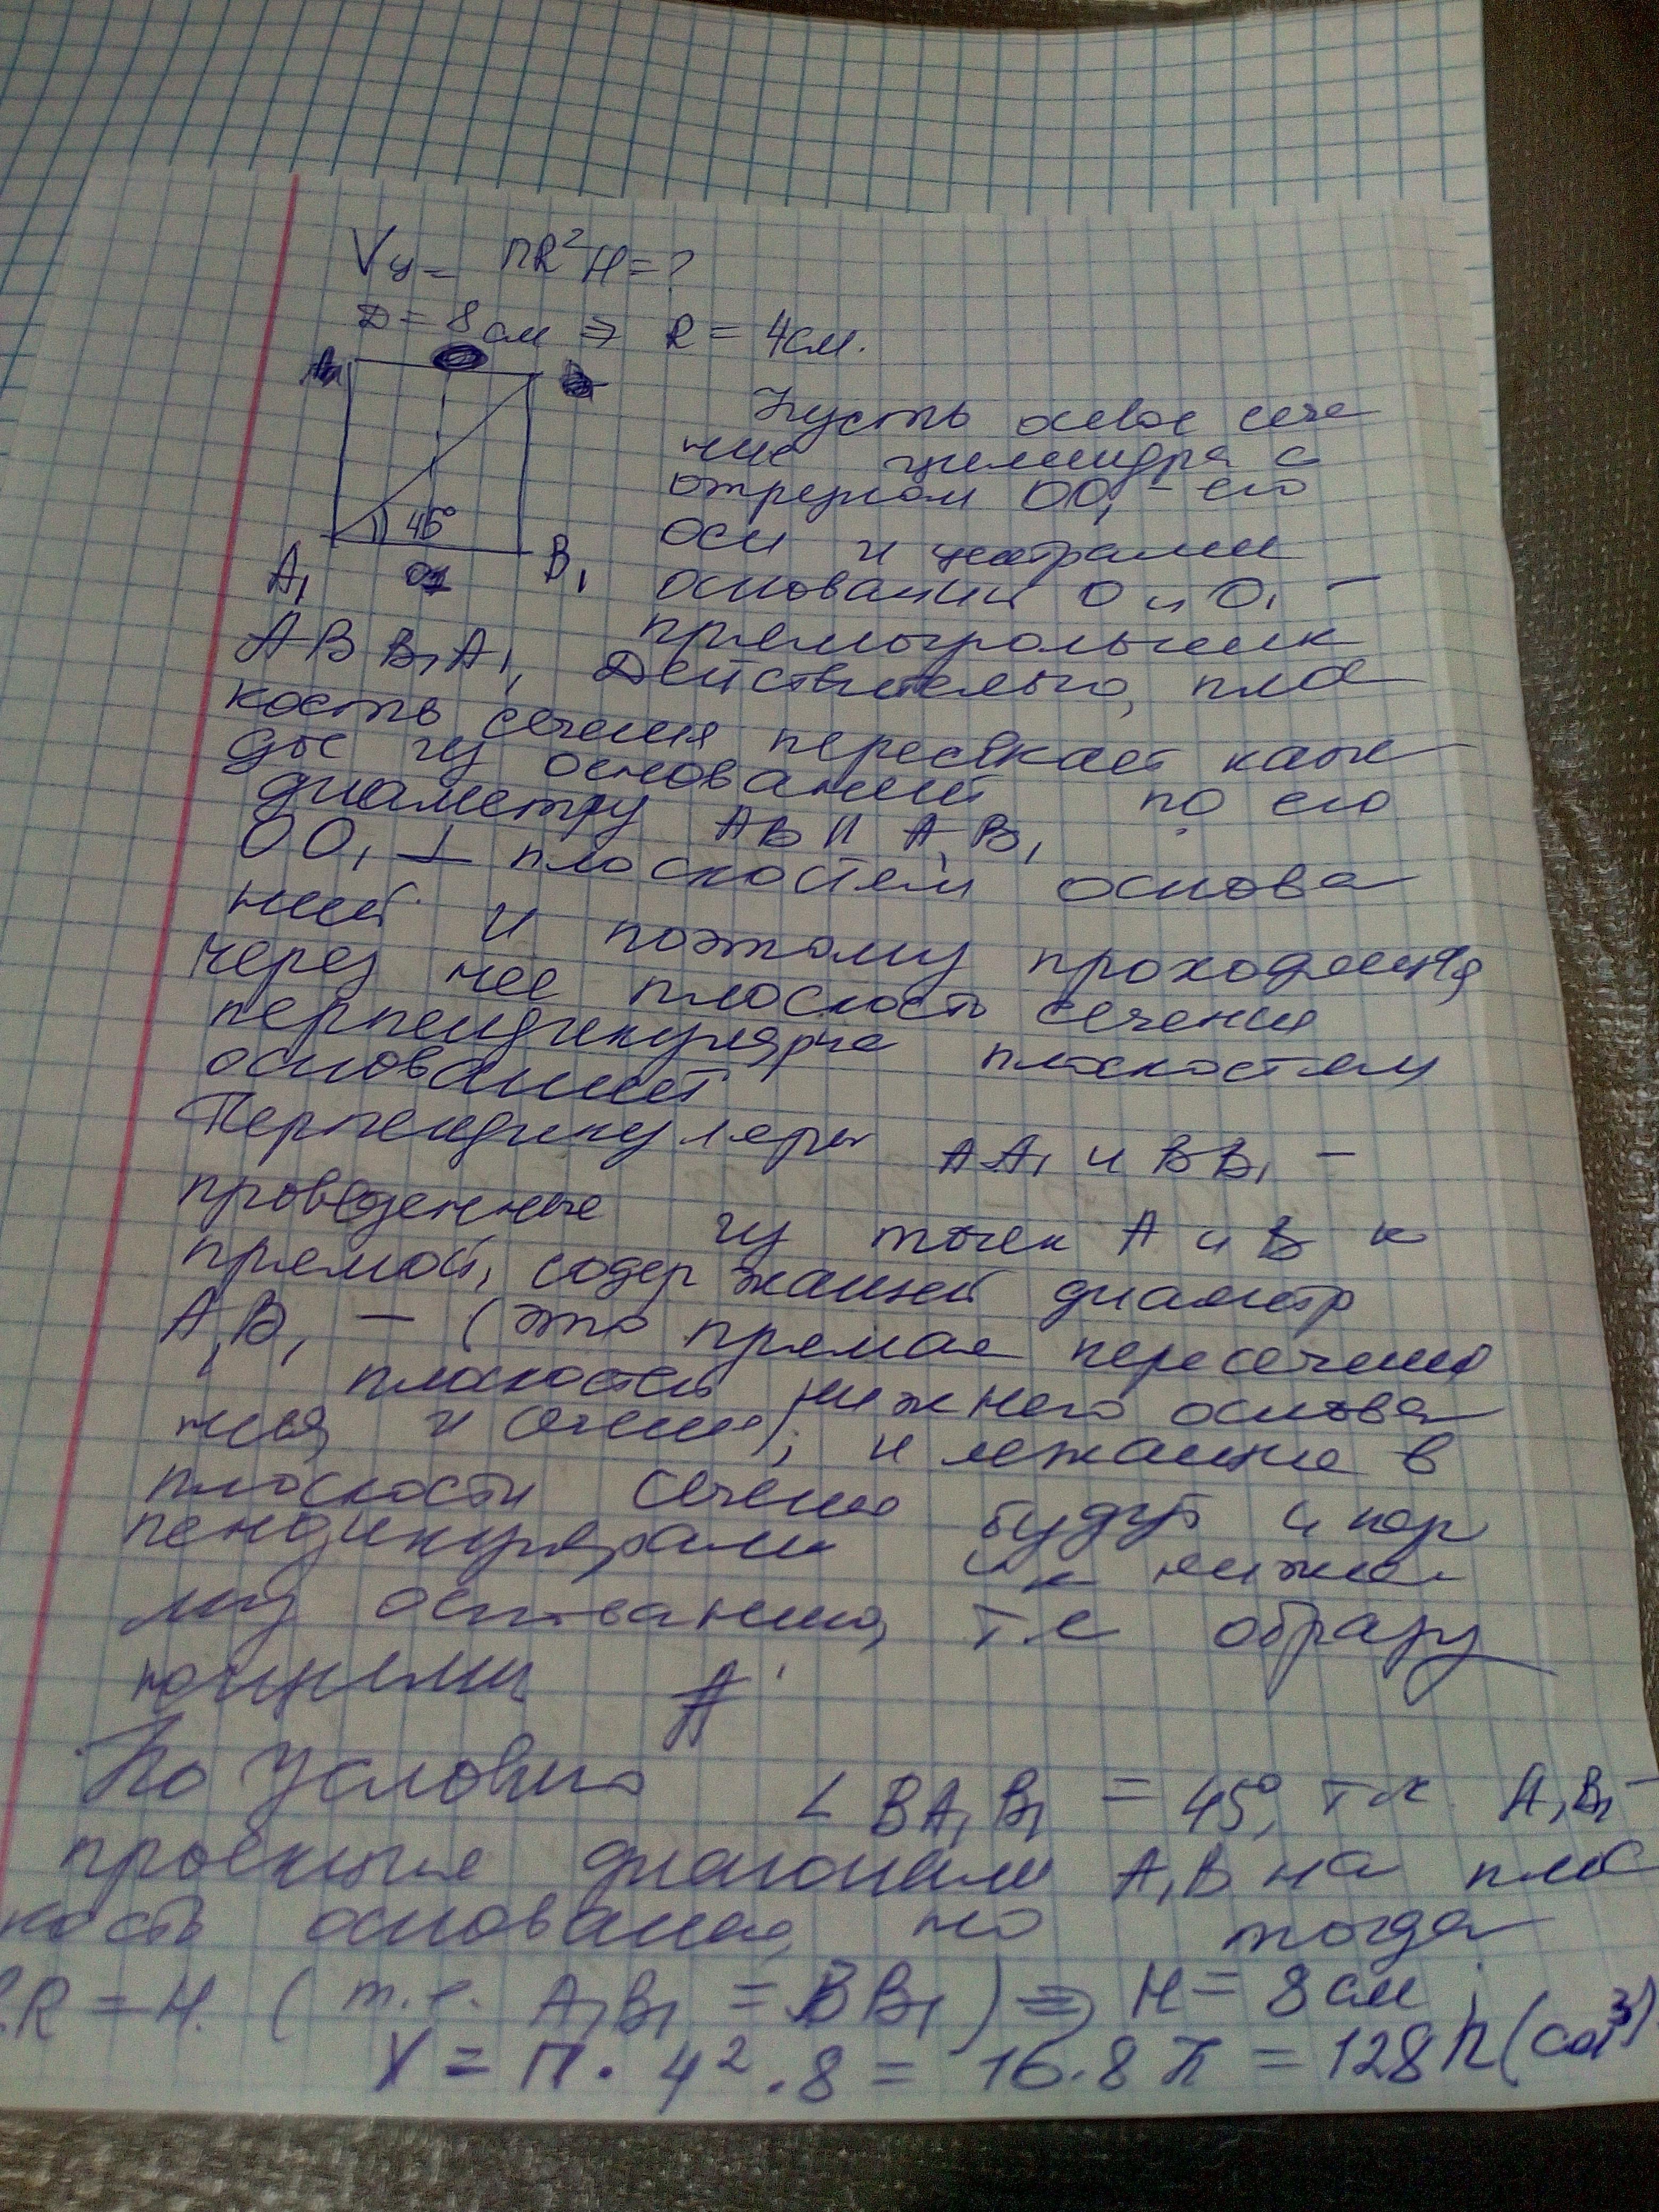 Vц = ПR²H = ?
D = 8 см ⇒ R = 4 см.
Пусть осевое сече
ние цилиндра с
отрезком OO₁ – его
45°
оси и центрами
A₁ O₁ B₁
оснований O и O₁ –
прямоугольник
ABB₁A₁, Действительно, плос
кость сечения пересекает каж
дое из оснований по его
диаметру AB || A₁B₁
OO₁ ⊥ плоскостям основа
ний и поэтому проходящая
через нее плоскость сечения
перпендикулярна плоскостям
оснований
Перпендикуляры AA₁ и BB₁ –
проведенные из точек A и B к
прямой, содержащей диаметр
A₁B₁ – (это прямая пересечения
плоскостей нижнего основа
ния и сечения), и лежащие в
плоскости сечения будут и пер
пендикулярами и к нижне
му основанию, т.е образу
ющими
По условию ∠BA₁B₁ = 45°, т.к. A₁B₁ –
проекция диагонали A₁B на плос
кость основания, но тогда
2R = H. (т.е. A₁B₁ = BB₁) ⇒ H = 8 см;
V = П · 4² · 8 = 16 · 8 π = 128 π (см³)